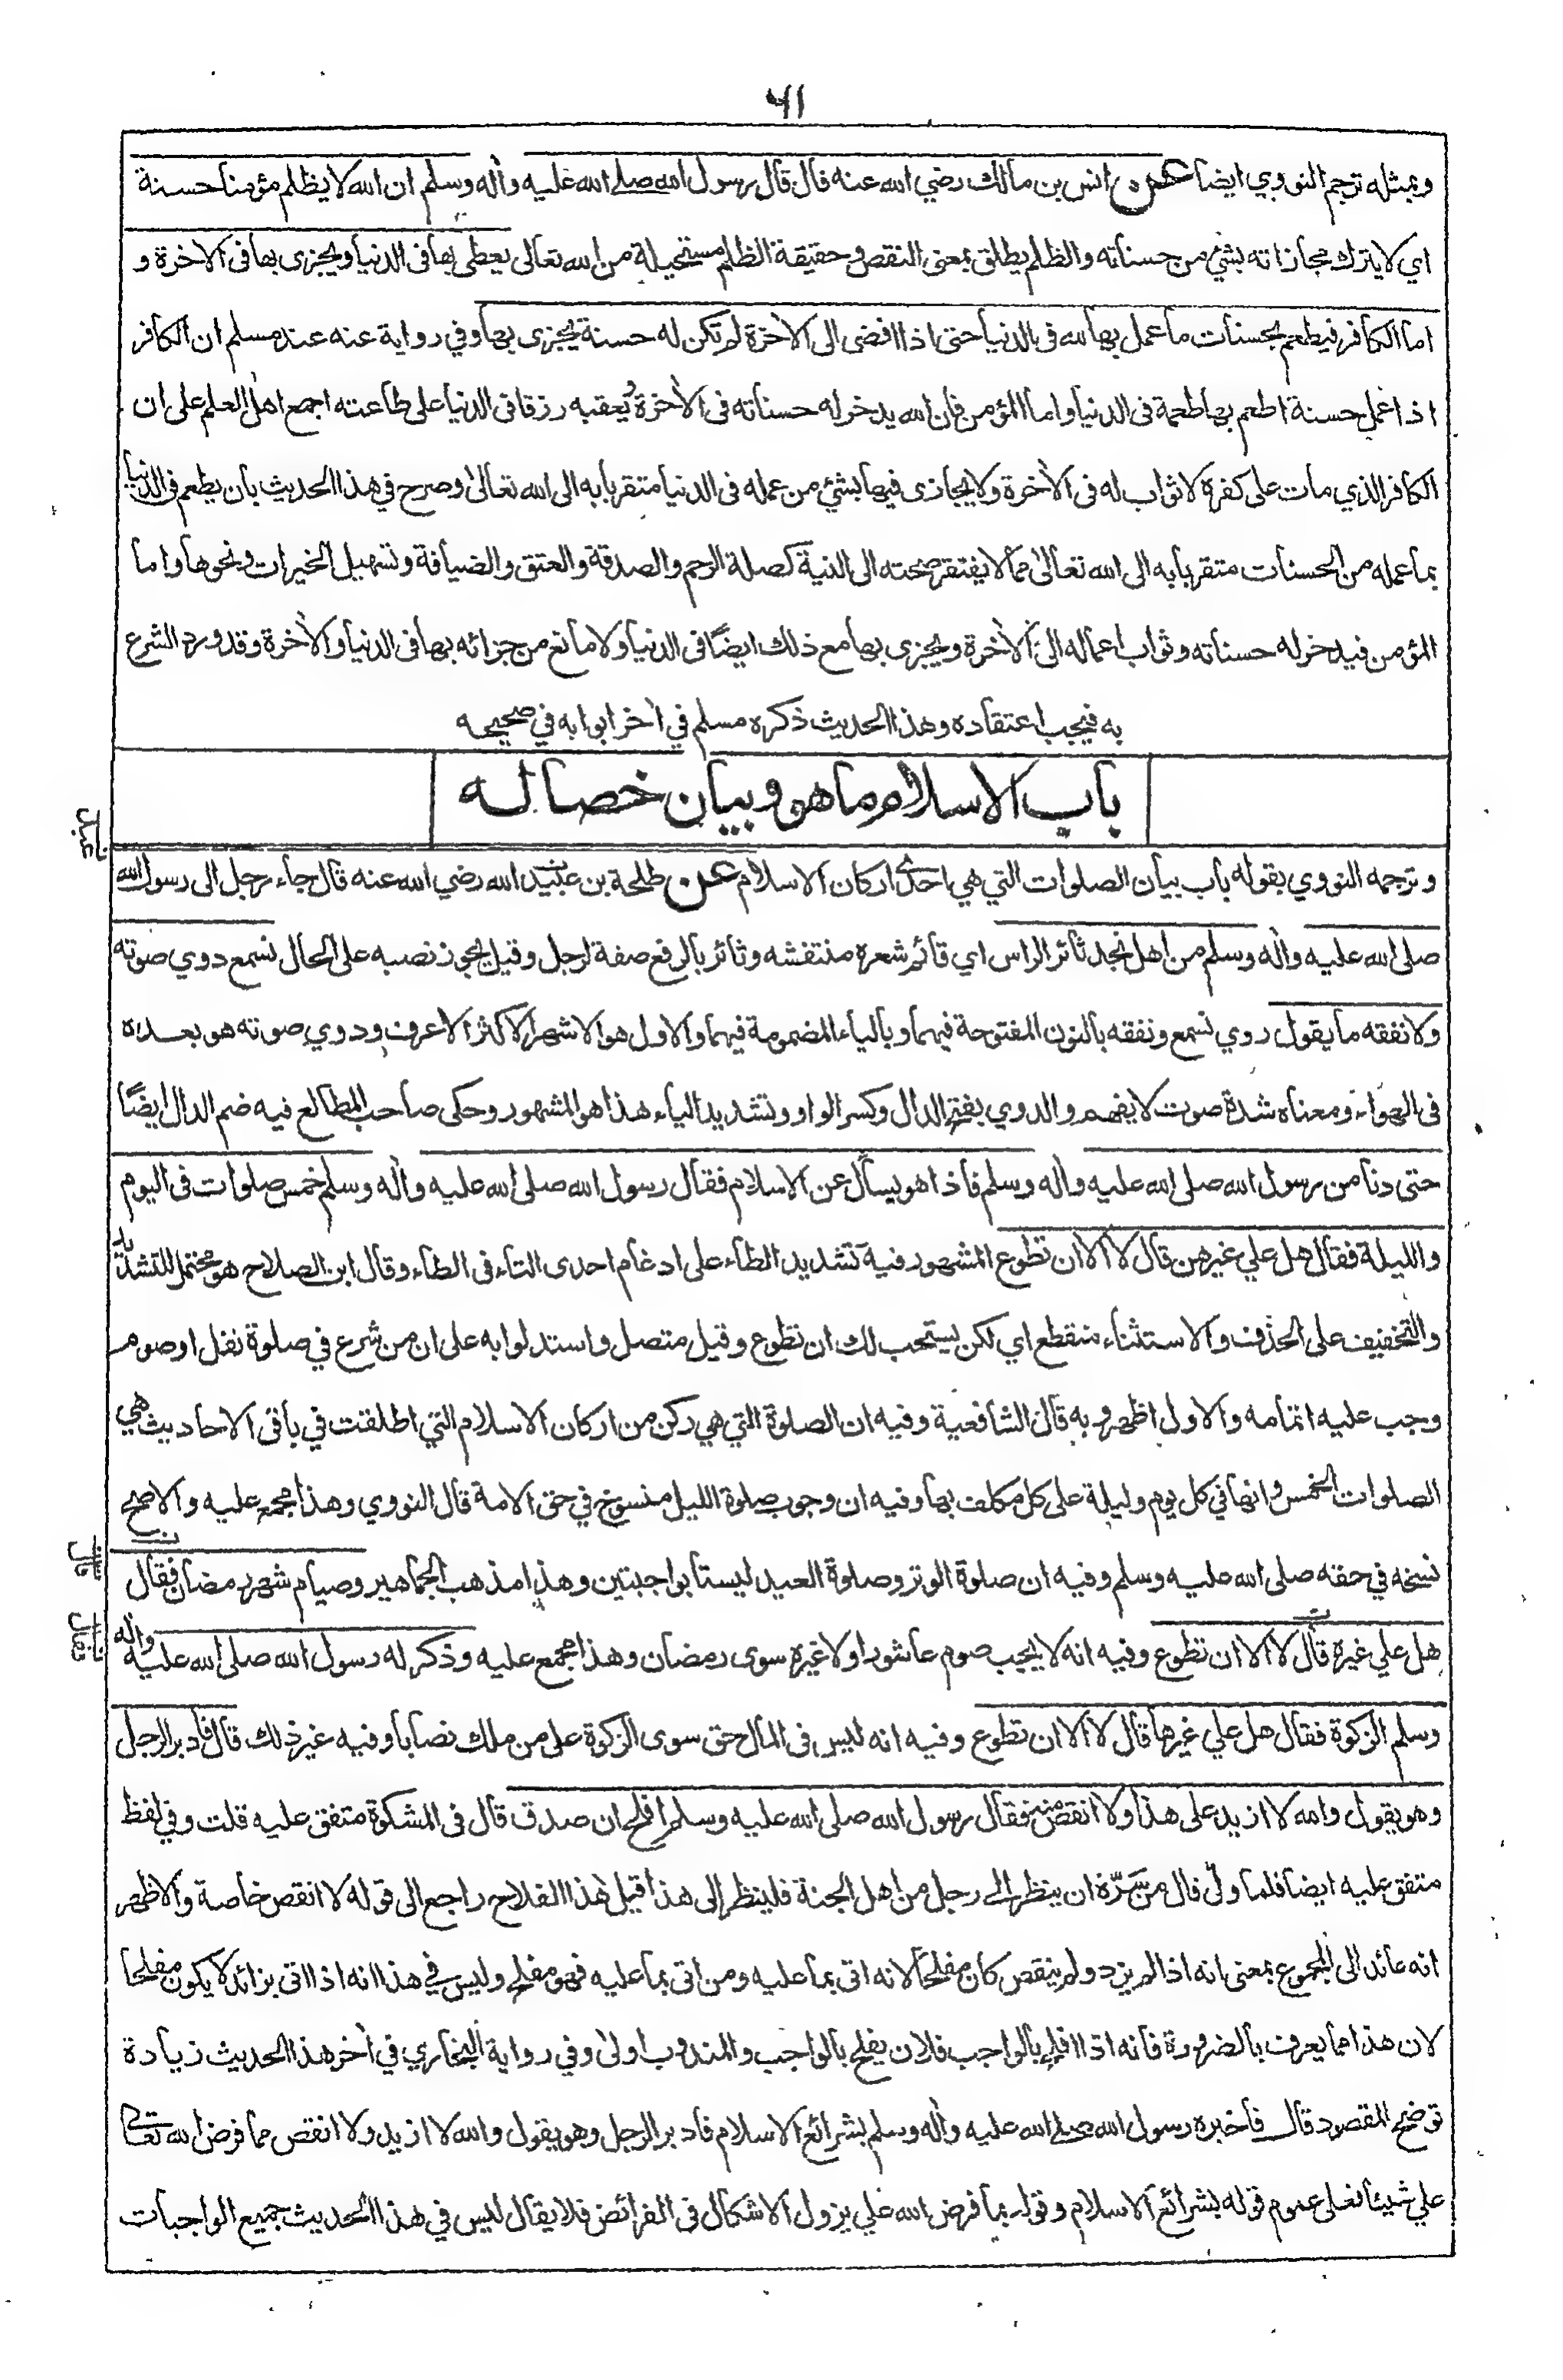 ٦١
وبمثله ترجم النووي ايضا عن انس بن مالك رضي الله عنه قال قال رسول الله صلى الله عليه واٰله وسلم ان الله لا يظلم مؤمنا حسنة
اي لا يترك مجازاته بشئ من حسناته والظلم يطلق بمعنى النقص وحقيقة الظلم مستحيلة من الله تعالى يعطى بها فى الدنيا ويجزى بها فى الاٰخرة و
اما الكافر فيطعم بحسنات ما عمل بها لله فى الدنيا حتى اذا افضى الى الاٰخرة لم تكن له حسنة يجزى بها وفي رواية عنه عند مسلم ان الكافر
اذا عمل حسنة اطعم بها طعمة فى الدنيا واما المؤمن فان الله يدخر له حسناته فى الاٰخرة ويُعقبه رزقا فى الدنيا على طاعته اجمع اهل العلم على ان
الكافر الذي مات على كفره لا ثواب له فى الاٰخرة ولا يجازى فيها بشئ من عمله فى الدنيا متقربا به الى الله تعالىٰ وصرح في هذا الحديث بان يطعم فى الدنيا
بما عمله من الحسنات متقربا به الى الله تعالىٰ مما لا يفتقر صحته الى النية كصلة الرحم والصدقة والعتق والضيافة وتسهيل الخيرات ونحوها واما
المؤمن فيدخر له حسناته وثواب اعماله الى الاٰخرة ويجزى بها مع ذلك ايضًا فى الدنيا ولا مانع من جزائه بها فى الدنيا والاٰخرة وقد ورد الشرع
به فيجب اعتقاده وهذا الحديث ذكره مسلم في اٰخر ابوابه في صحيحه
باب الاسلام ما هو وبيان خصاله
وترجمه النووي بقوله باب بيان الصلوات التي هي احدى اركان الاسلام عن طلحة بن عبيد الله رضي الله عنه قال جاء رجل الى رسول الله
صلى الله عليه واٰله وسلم من اهل نجد ثائر الراس اي قائم شعره منتفشه وثائر بالرفع صفة لرجل وقيل يجوز نصبه على الحال نسمع دوي صوته
ولا نفقه ما يقول روي نسمع ونفقه بالنون المفتوحة فيهما وبالياء المضمومة فيهما والاول هو الاشهر الاكثر الاعرف ودوي صوته هو بعده
فى الهواء ومعناه شدة صوت لا يفهم والدوي بفتح الدال وكسر الواو وتشديد الياء هذا هو المشهور وحكى صاحب المطالع فيه ضم الدال ايضًا
حتى دنا من رسول الله صلى الله عليه واٰله وسلم فاذا هو يسأل عن الاسلام فقال رسول الله صلى الله عليه واٰله وسلم خمس صلوات فى اليوم
والليلة فقال هل علي غيرهن قال لا الا ان تطوع المشهور فيه تشديد الطاء على ادغام احدى التاء فى الطاء وقال ابن الصلاح هو محتمل للتشديد
والتخفيف على الحذف والاستثناء منقطع اي لكن يستحب لك ان تطوع وقيل متصل واستدلوا به على ان من شرع في صلوة نفل او صوم
وجب عليه اتمامه والاول اظهر وبه قال الشافعية وفيه ان الصلوة التي هي ركن من اركان الاسلام التي اطلقت في باقى الاحاديث هي
الصلوات الخمس وانها في كل يوم وليلة على كل مكلف بها وفيه ان وجوب صلوة الليل منسوخ في حق الامة قال النووي وهذا مجمع عليه والاصح
نسخه في حقه صلى الله عليه وسلم وفيه ان صلوة الوتر وصلوة العيد ليستا بواجبتين وهذا مذهب الجماهير وصيام شهر رمضان فقال
هل علي غيره قال لا الا ان تطوع وفيه انه لا يجب صوم عاشورا ولا غيره سوى رمضان وهذا مجمع عليه وذكر له رسول الله صلى الله عليه واٰله
وسلم الزكوة فقال هل علي غيرها قال لا الا ان تطوع وفيه انه ليس فى المال حق سوى الزكوة على من ملك نصابا وفيه غير ذلك قال فادبر الرجل
وهو يقول والله لا ازيد على هذا ولا انقص منه فقال رسول الله صلى الله عليه وسلم افلح ان صدق قال فى المشكوة متفق عليه قلت وفي لفظ
متفق عليه ايضا فلما ولّى قال من سَرَّه ان ينظر الى رجل من اهل الجنة فلينظر الى هذا قيل هذا الفلاح راجع الى قوله لا انقص خاصة والاظهر
انه عائد الى المجموع بمعنى انه اذا لم يزد ولم ينقص كان مفلحًا لانه اتى بما عليه ومن اتى بما عليه فهو مفلح وليس في هذا انه اذا اتى بزائد لا يكون مفلحا
لان هذا مما يعرف بالضرورة فانه اذا افلح بالواجب فلان يفلح بالواجب والمندوب اولى وفي رواية البخاري في اٰخر هذا الحديث زيادة
توضح المقصود قال فاخبره رسول الله صلى الله عليه واٰله وسلم بشرائع الاسلام فادبر الرجل وهو يقول والله لا ازيد ولا انقص مما فرض الله تعالى
علي شيئا فعلى عموم قوله بشرائع الاسلام وقوله بما فرض الله علي يزول الاشكال فى الفرائض فلا يقال ليس في هذا الحديث جميع الواجبات